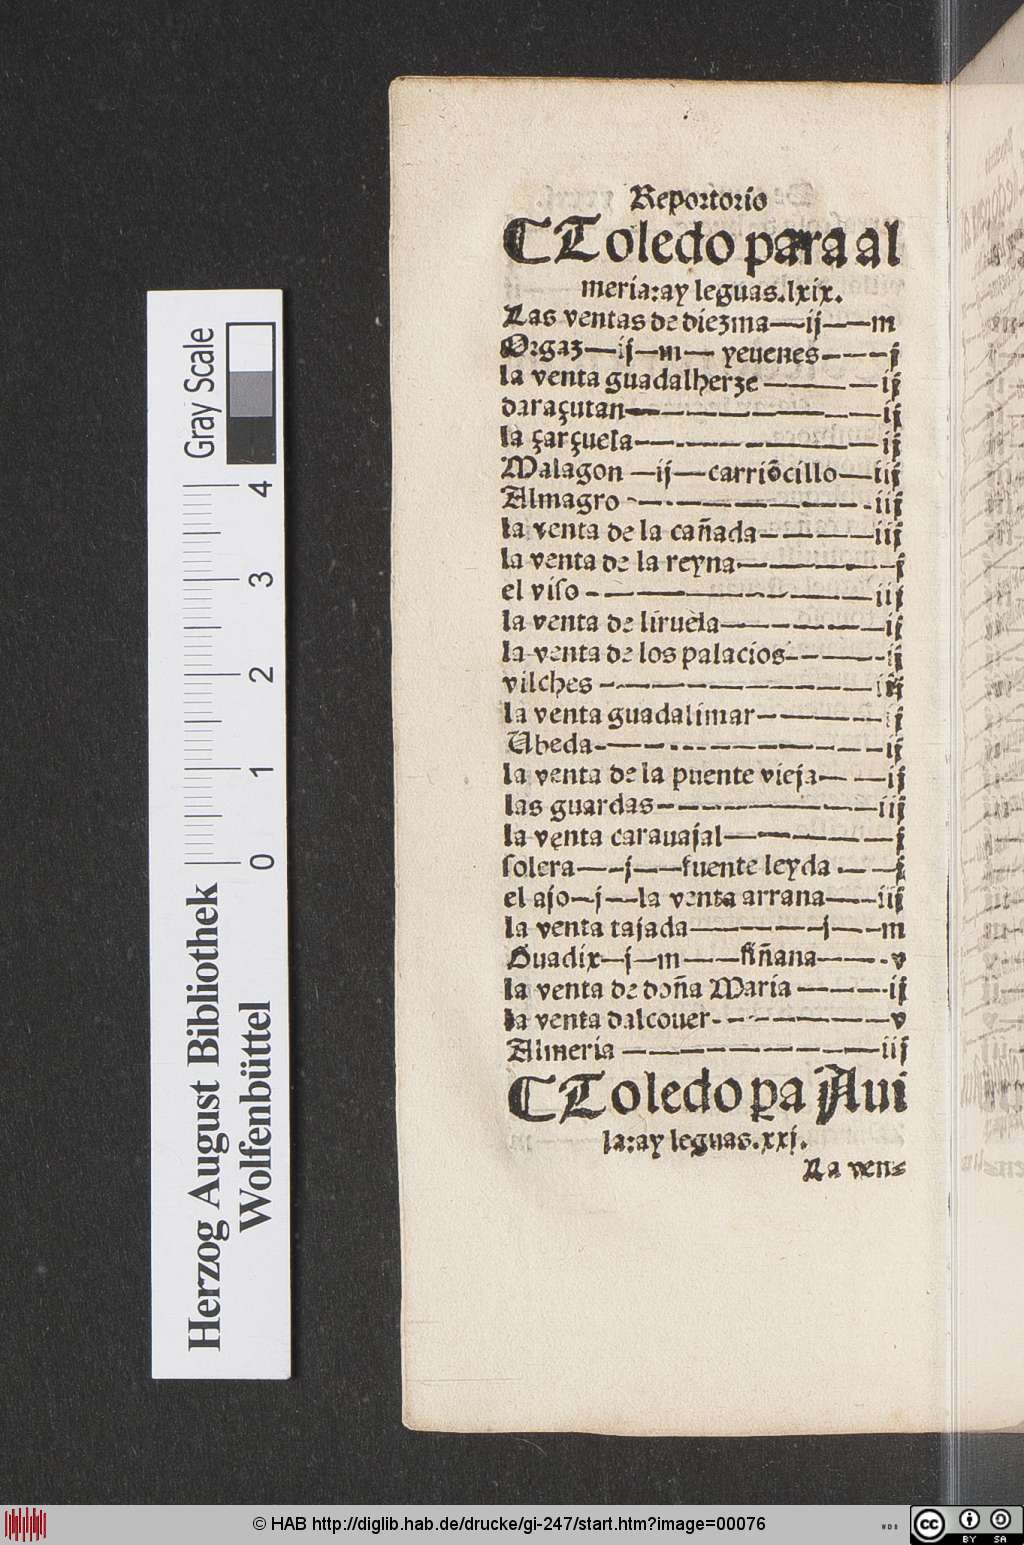 Reportorio
Toledo para al
meria:ay leguas.lxix.
Las ventas de diezma—ij——m
Orgaz—ij—m— yeuenes———j
la venta guadalherze ———ij
daraçutan————————ij
la çarçuela————————ij
Malagon —ij—carriōcillo—iij
Almagro ————————iij
la venta de la cañada————iij
la venta de la reyna—————j
el viso —————————iij
la venta de liruela—————ij
la venta de los palacios————ij
vilches —————————iij
la venta guadalimar————ij
Ubeda—————————ij
la venta de la puente vieja— —ij
las guardas———————iij
la venta carauajal—————j
solera——j——fuente leyda ——j
el ajo—j——la venta arrana——iij
la venta tajada—————j——m
Guadix—j—m———fiñana———v
la venta de doña Maria ———ij
la venta dalcouer——————v
Almeria —————————iij
Toledo pa Aui
la:ay leguas.xxj.
La ven-
Gray Scale
0 1 2 3 4
Herzog August Bibliothek
Wolfenbüttel
© HAB http://diglib.hab.de/drucke/gi-247/start.htm?image=00076
WDB
cc
BY SA